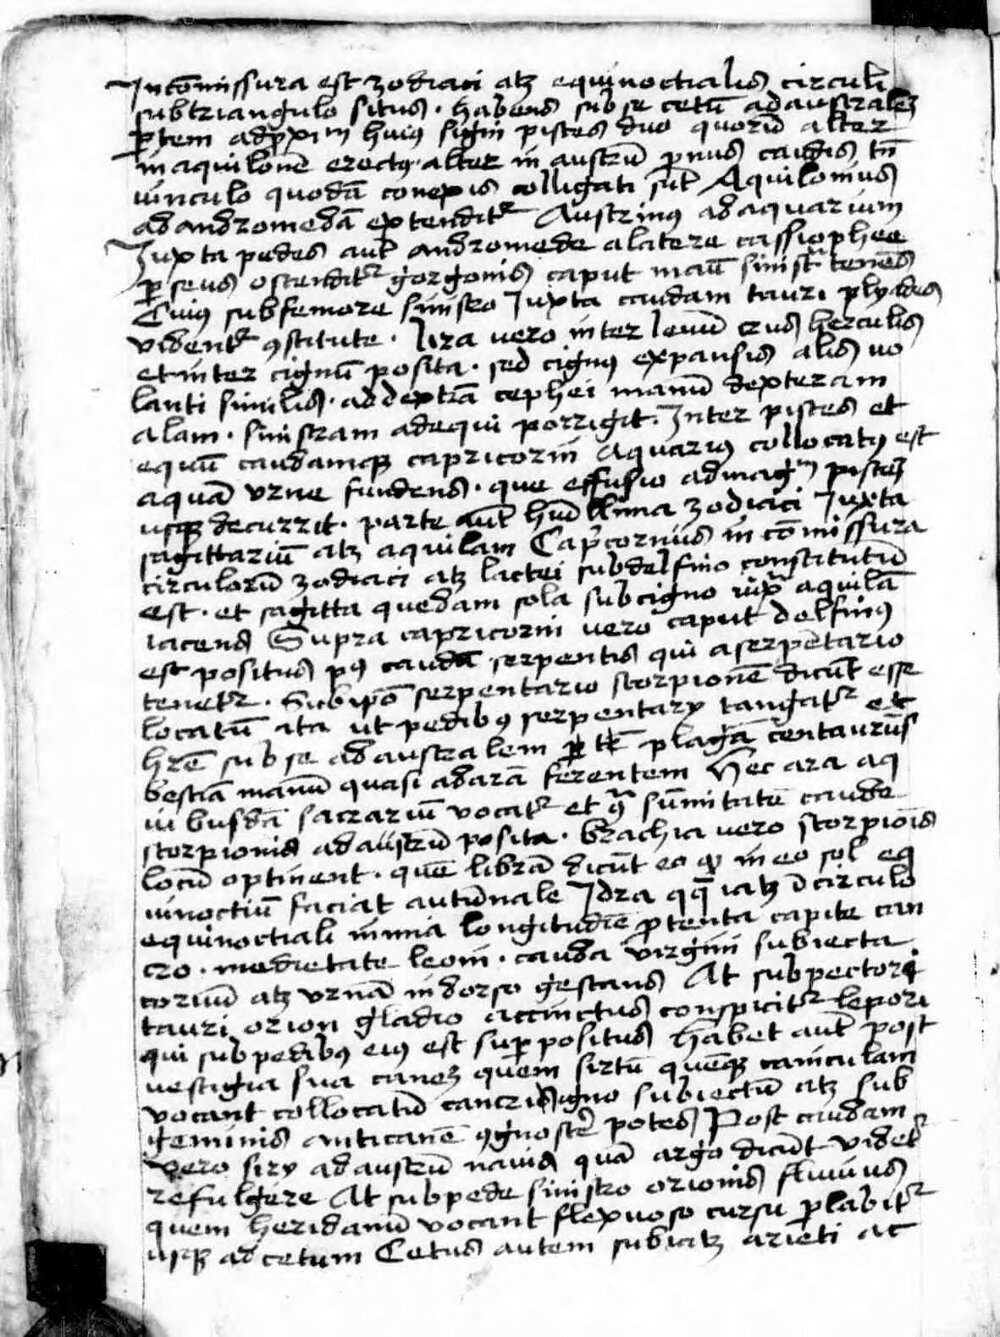 In cōmissura est zodiaci atqꝫ equinoctialis circuli
subtriangulo situs . habens sub se cetū ad australeꝫ
ꝑtem adpͥximͫ huiꝯ signi pisces duo quorū alter
in aquilonē erectꝯ . alter in austrū ꝓnus caudis tn̄
vinculo quodā conexis colligati sūt Aquilonius
ad andromedā extenditᷣ Austrinꝯ ad aquarium
Iuxta pedes aūt andromede a latere cassiophee
ꝑseus ostenditᷣ gorgonis caput manū sinistͣ tenēs
Cuiꝯ sub femore sinistro Iuxta caudam tauri plyades
videntᷣ ꝯstitute . lira vero inter levū crus herculis
et inter cignū posita . sed cignꝯ expansis alis vo
lanti similis . ad dextrā cephei manū dexteram
alam . sinistram ad equi porrigit . Inter pisces et
equū caudamqꝫ capricorni Aquariꝯ collocatꝯ est
aquā vrne fundens . que effusio ad magͫ pisceꝫ
usqꝫ decurrit . parte aūt zodiaci Iuxta
sagittariū atqꝫ aquilam Capͥcornus in cōmissura
circulorū zodiaci atqꝫ lactei sub delfino constitutū
est . et sagitta quedam sola sub cigno iuxͣ aquilā
iacens Supra capricorni vero caput delfinꝯ
est positus pꝯ caudā serpentis qui a serpētario
tenetᷣ . Sub ipō serpentario scorpionē dicūt esse
locatū ita ut pedibꝯ serpentarii tangatᷣ et
hr̄e sub se ad australem plagā centaurūs
bestiā manū quasi ad arā ferentem Hec ara a q
ui busdā sacrariū vocatᷣ et ꝯͣ sūmitatē caude
scorpionis ad austrū posita . brachia vero scorpiōis
locū optinent . quē librā dicūt eo ꝙ in eo sol eq
uinoctiū faciat autūnale Idra qqͣ̄ iatqꝫ ī circulo
equinoctiali nimia longitudīe ꝓtenta capite can
cro . medietate leoni . cauda virgini subiecta
corvū atqꝫ vrnā in dorso gestans At sub pectore
tauri orion gladio accinctus conspicitᷣ lepori
qui sub pedibꝯ eiꝯ est suꝑpositus habet aūt post
vestigia sua caneꝫ quem siriū quēqꝫ caniculam
vocant collocatū cancri signo subiectū atqꝫ sub
geminis anticanē ꝯgnoscͤ potes Post caudam
vero sirii ad austrū navis quā argo dicūt videtᷣ
refulgere At sub pede sinistro orionis fluvius
quem heridanū vocant flexuoso cursu ꝑlabitᷣ
usqꝫ ad cetum Cetus autem subiatꝫ arieti ac